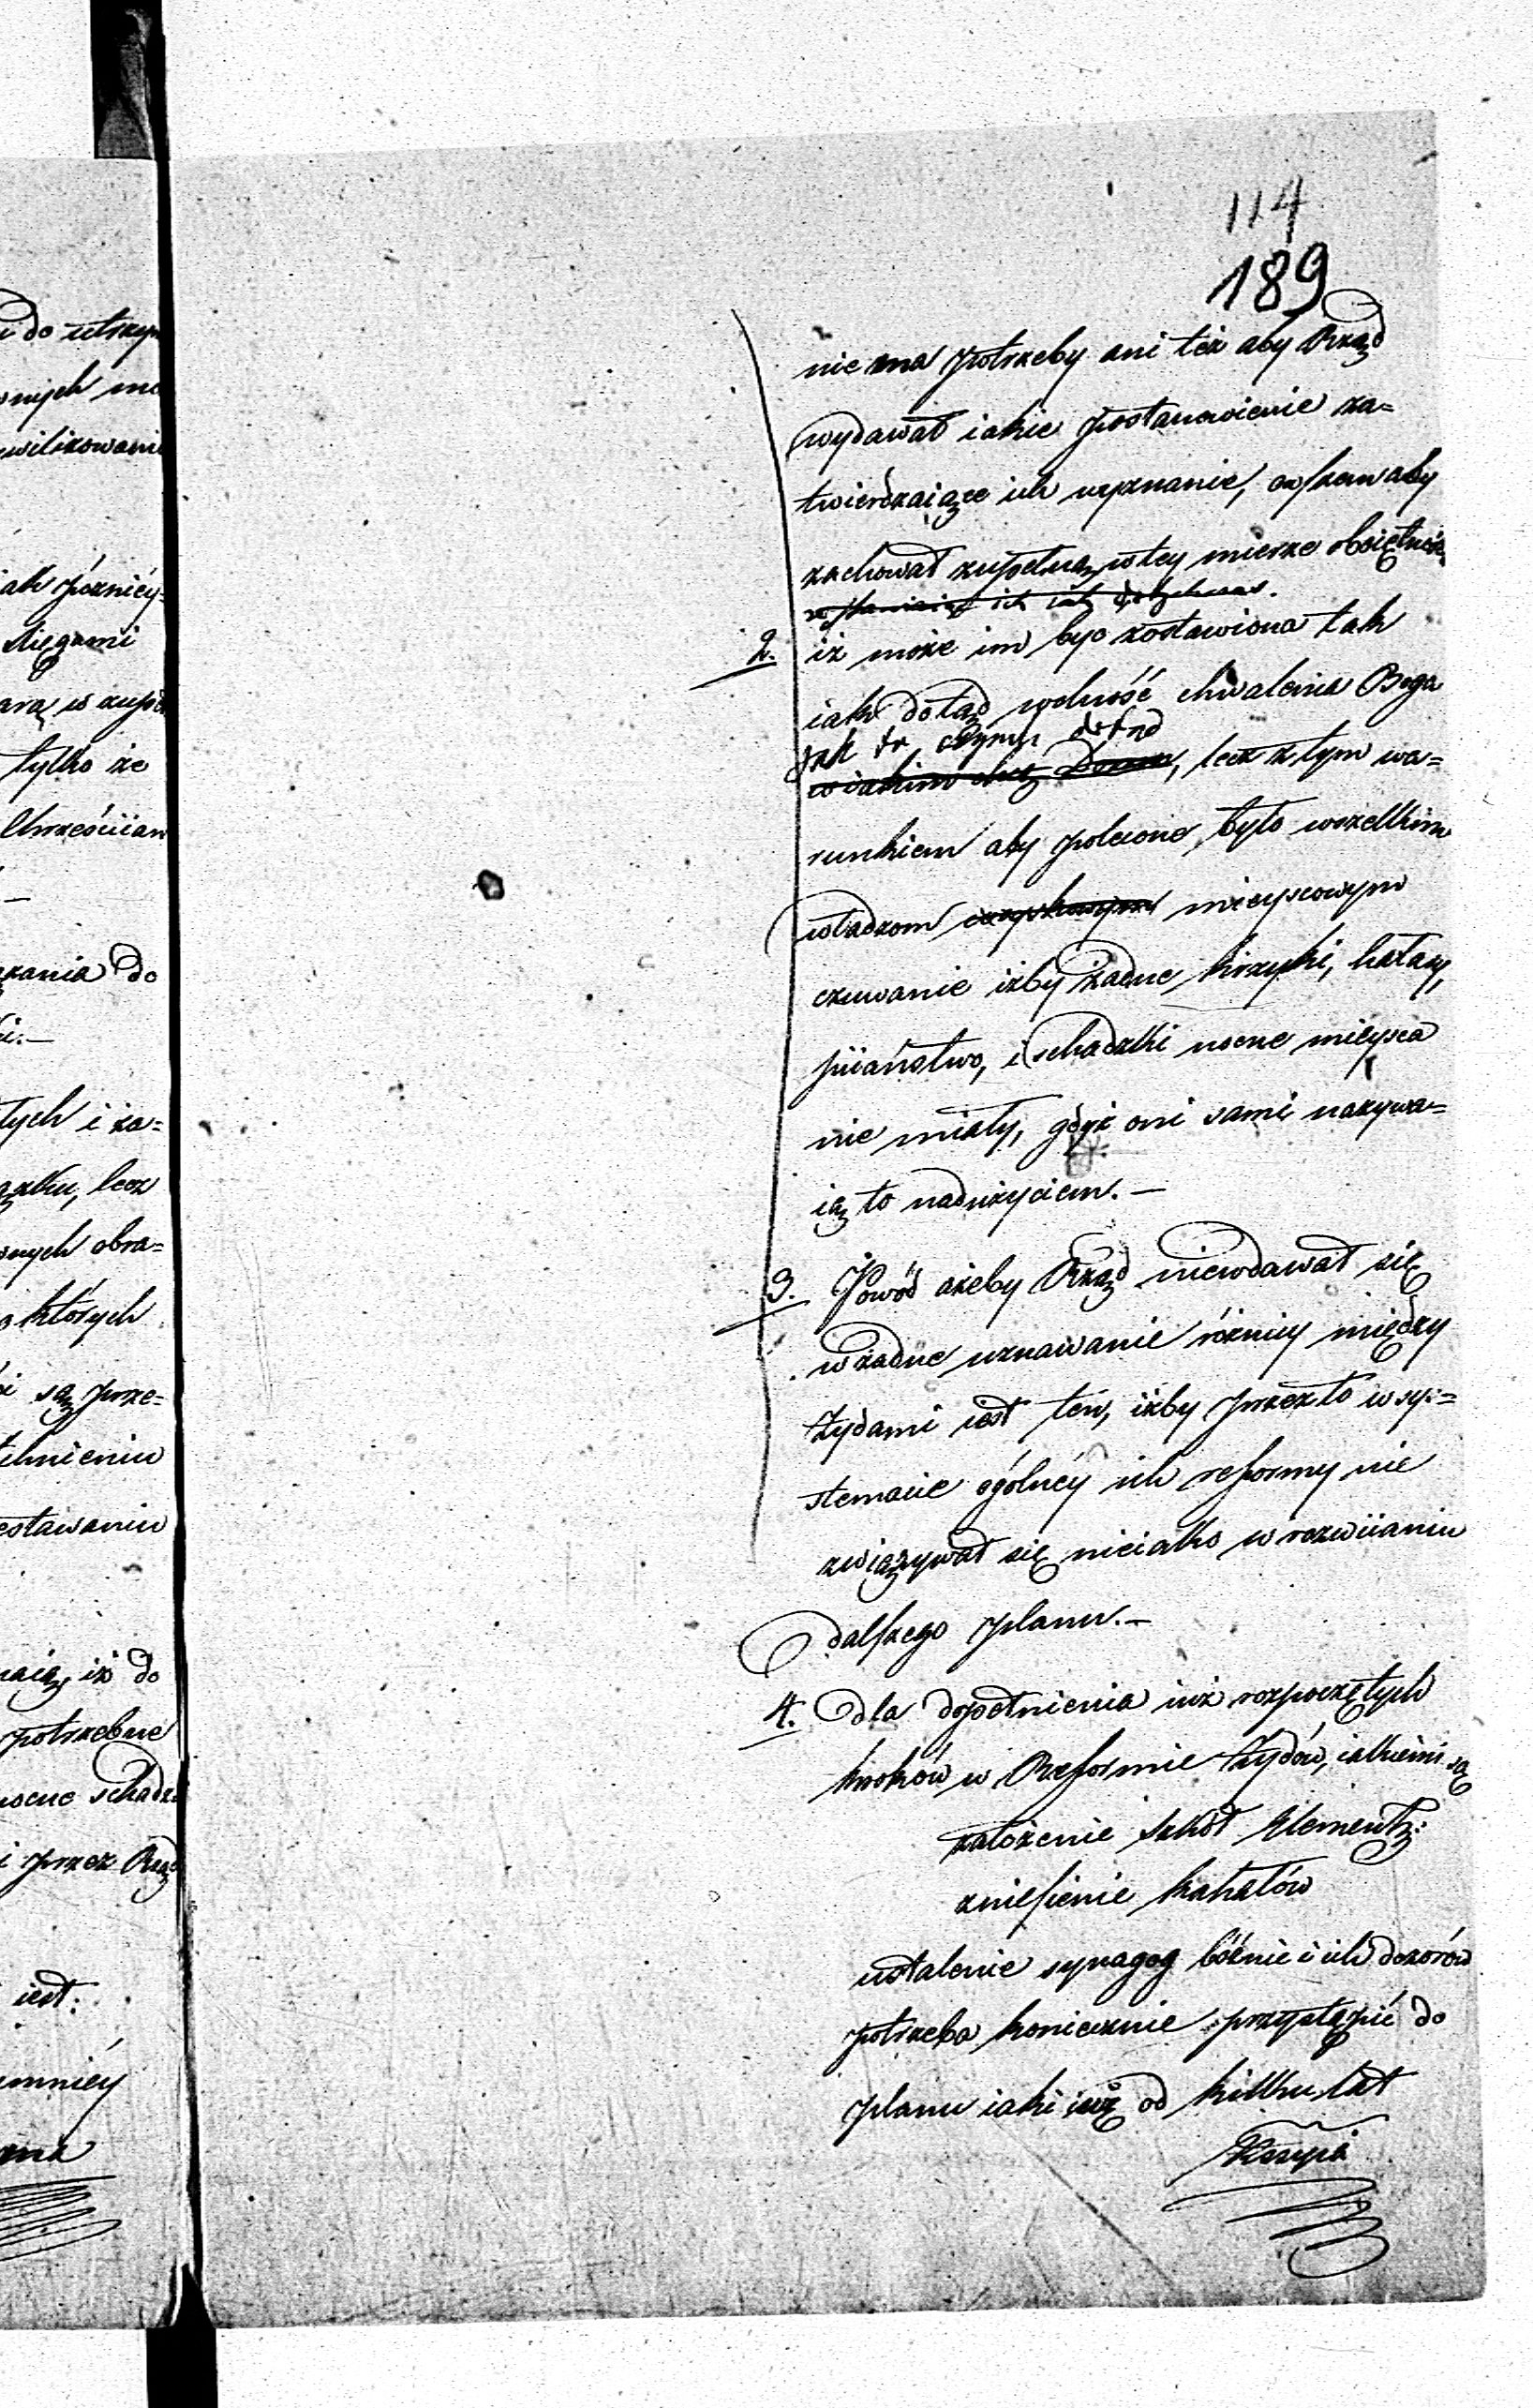 114
189
nie ma potrzeby ani też aby Rząd
wydawał iakie postanowienie za=
twierdzaiące ich wyznanie, owszem aby
zachował zupełną w tey mierze obojętność
ich iak dotychczas.
2. iż może im być zostawiona tak
iak dotąd wolność chwalenia Boga
jak to czynią dotąd
w iakim chcą Domu, lecz z tym wa=
runkiem aby polecone było wszelkim
władzom mieyscowym
czuwanie iżby żadne krzyki, hałasy,
piiaństwo, i schadzki nocne mieysca
nie miały, gdyż oni sami nazywa=
ią to nadużyciem.—
3. Powód ażeby Rząd niewdawał się
w żadne uznawanie różnicy między
Żydami iest ten, iżby przez to w sy=
stemacie ogólnéy ich reformy nie
związywał się nieiako w rozwiianiu
dalszego planu.—
4. dla dopełnienia iuż rozpoczętych
kroków w Reformie Żydów, iakiemi są
założenie szkół Element:
zniesienie kahałów
ustalenie synagog bóżnic i ich dozorów
potrzeba koniecznie przystąpić do
planu iaki iuż od kilku lat
do utrzym
nych
wilizowani
iak późniéy=
sięgami
arą w
tylko że
Chrześciian
zania do
tych i za=
ązku, lecz
nych obra=
których
i są prze=
ełnieniu
estawaniu
aią, iż do
potrzebne
nocne schadz
i przez Rzą
iest:
mniéy
ma